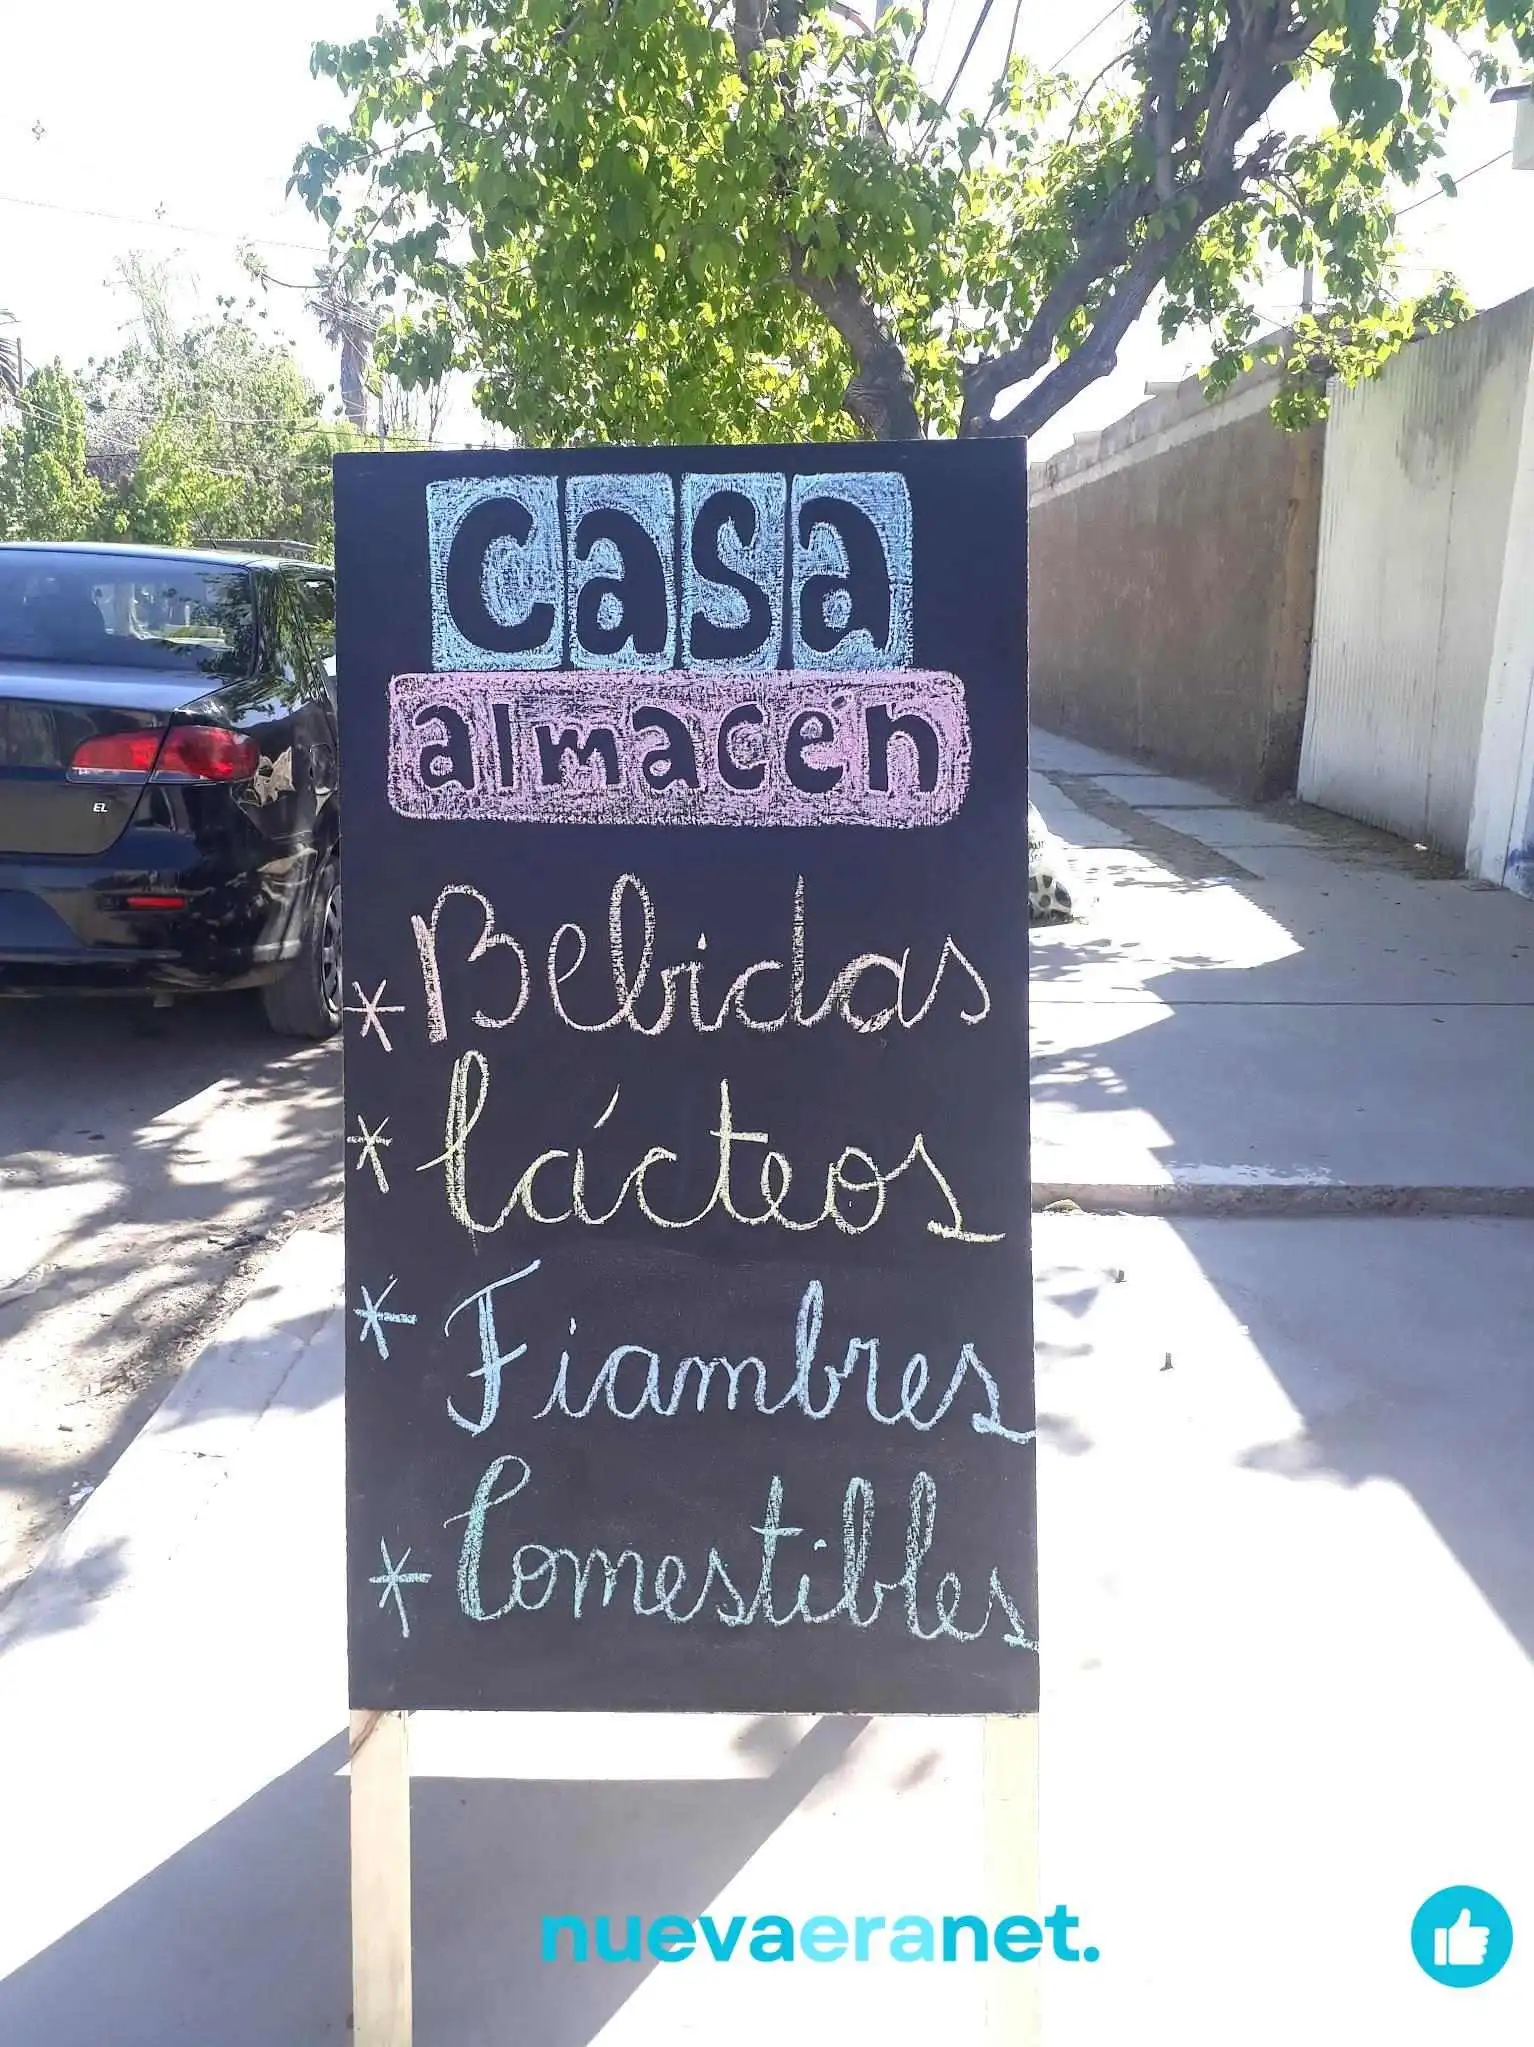 casa
almacén
* Bebidas
* lácteos
* Fiambres
* Comestibles
EL
nuevaeranet.